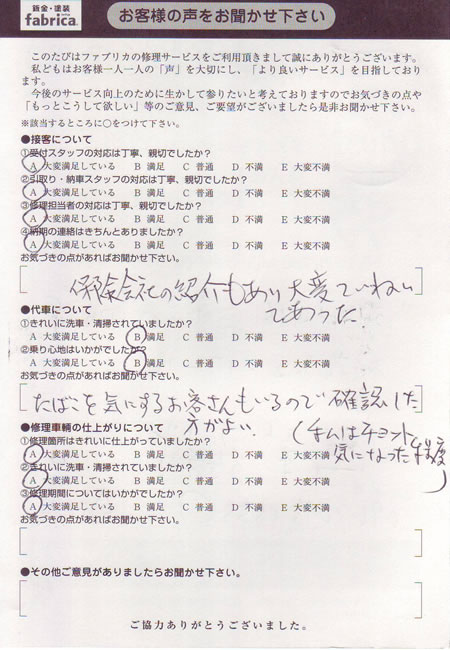 鈑金・塗装
fabrica.
お客様の声をお聞かせ下さい
このたびはファブリカの修理サービスをご利用頂きまして誠にありがとうございます。
私どもはお客様一人一人の「声」を大切にし、「より良いサービス」を目指しており
ます。
今後のサービス向上のために生かして参りたいと考えておりますのでお気づきの点や
「もっとこうして欲しい」等のご意見、ご要望がございましたら是非お聞かせ下さい。
※該当するところに○をつけて下さい。
●接客について
①受付スタッフの対応は丁寧、親切でしたか?
A 大変満足している B 満足 C 普通 D 不満 E 大変不満
②引取り・納車スタッフの対応は丁寧、親切でしたか?
A 大変満足している B 満足 C 普通 D 不満 E 大変不満
③修理担当者の対応は丁寧、親切でしたか?
A 大変満足している B 満足 C 普通 D 不満 E 大変不満
④納期の連絡はきちんとありましたか?
A 大変満足している B 満足 C 普通 D 不満 E 大変不満
お気づきの点があればお聞かせ下さい。
保険会社の紹介もあり大変ていねい
であった.
●代車について
①きれいに洗車・清掃されていましたか?
A 大変満足している B 満足 C 普通 D 不満 E 大変不満
②乗り心地はいかがでしたか?
A 大変満足している B 満足 C 普通 D 不満 E 大変不満
お気づきの点があればお聞かせ下さい。
たばこを気にするお客さんもいるので確認した
方がよい.
(私はチョット
気になった程度)
●修理車輌の仕上がりについて
①修理箇所はきれいに仕上がっていましたか?
A 大変満足している B 満足 C 普通 D 不満 E 大変不満
②きれいに洗車・清掃されていましたか?
A 大変満足している B 満足 C 普通 D 不満 E 大変不満
③修理期間についてはいかがでしたか?
A 大変満足している B 満足 C 普通 D 不満 E 大変不満
お気づきの点があればお聞かせ下さい。
●その他ご意見がありましたらお聞かせ下さい。
ご協力ありがとうございました。